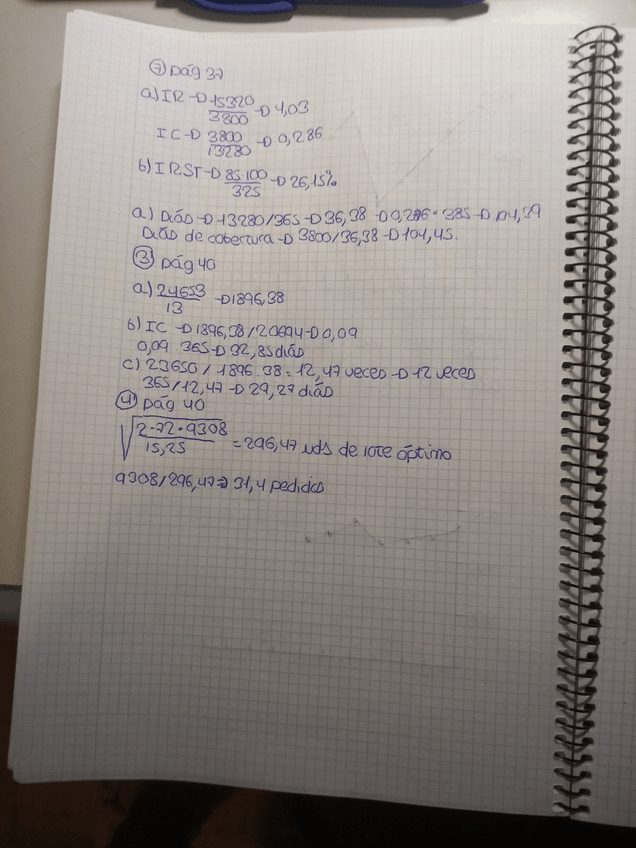 ⑦ Pág 37
a) IR → 15320/3800 → 4,03
IC → 3800/13280 → 0,286
b) IRST → 85·100/325 → 26,15%
a) Días → 13280/365 → 36,38 → 0,286 · 365 → 104,39
Días de cobertura → 3800/36,38 → 104,45.
③ Pág 40
a) 24653/13 → 1896,38
b) IC → 1896,38/20694 → 0,09
0,09 365 → 32,85 días
c) 23650/1896.38 = 12,47 veces → 12 veces
365/12,47 → 29,27 días
④ Pág 40
√(2·72·9308/15,25) = 296,47 uds de lote óptimo
9308/296,47 ⇒ 31,4 pedidos